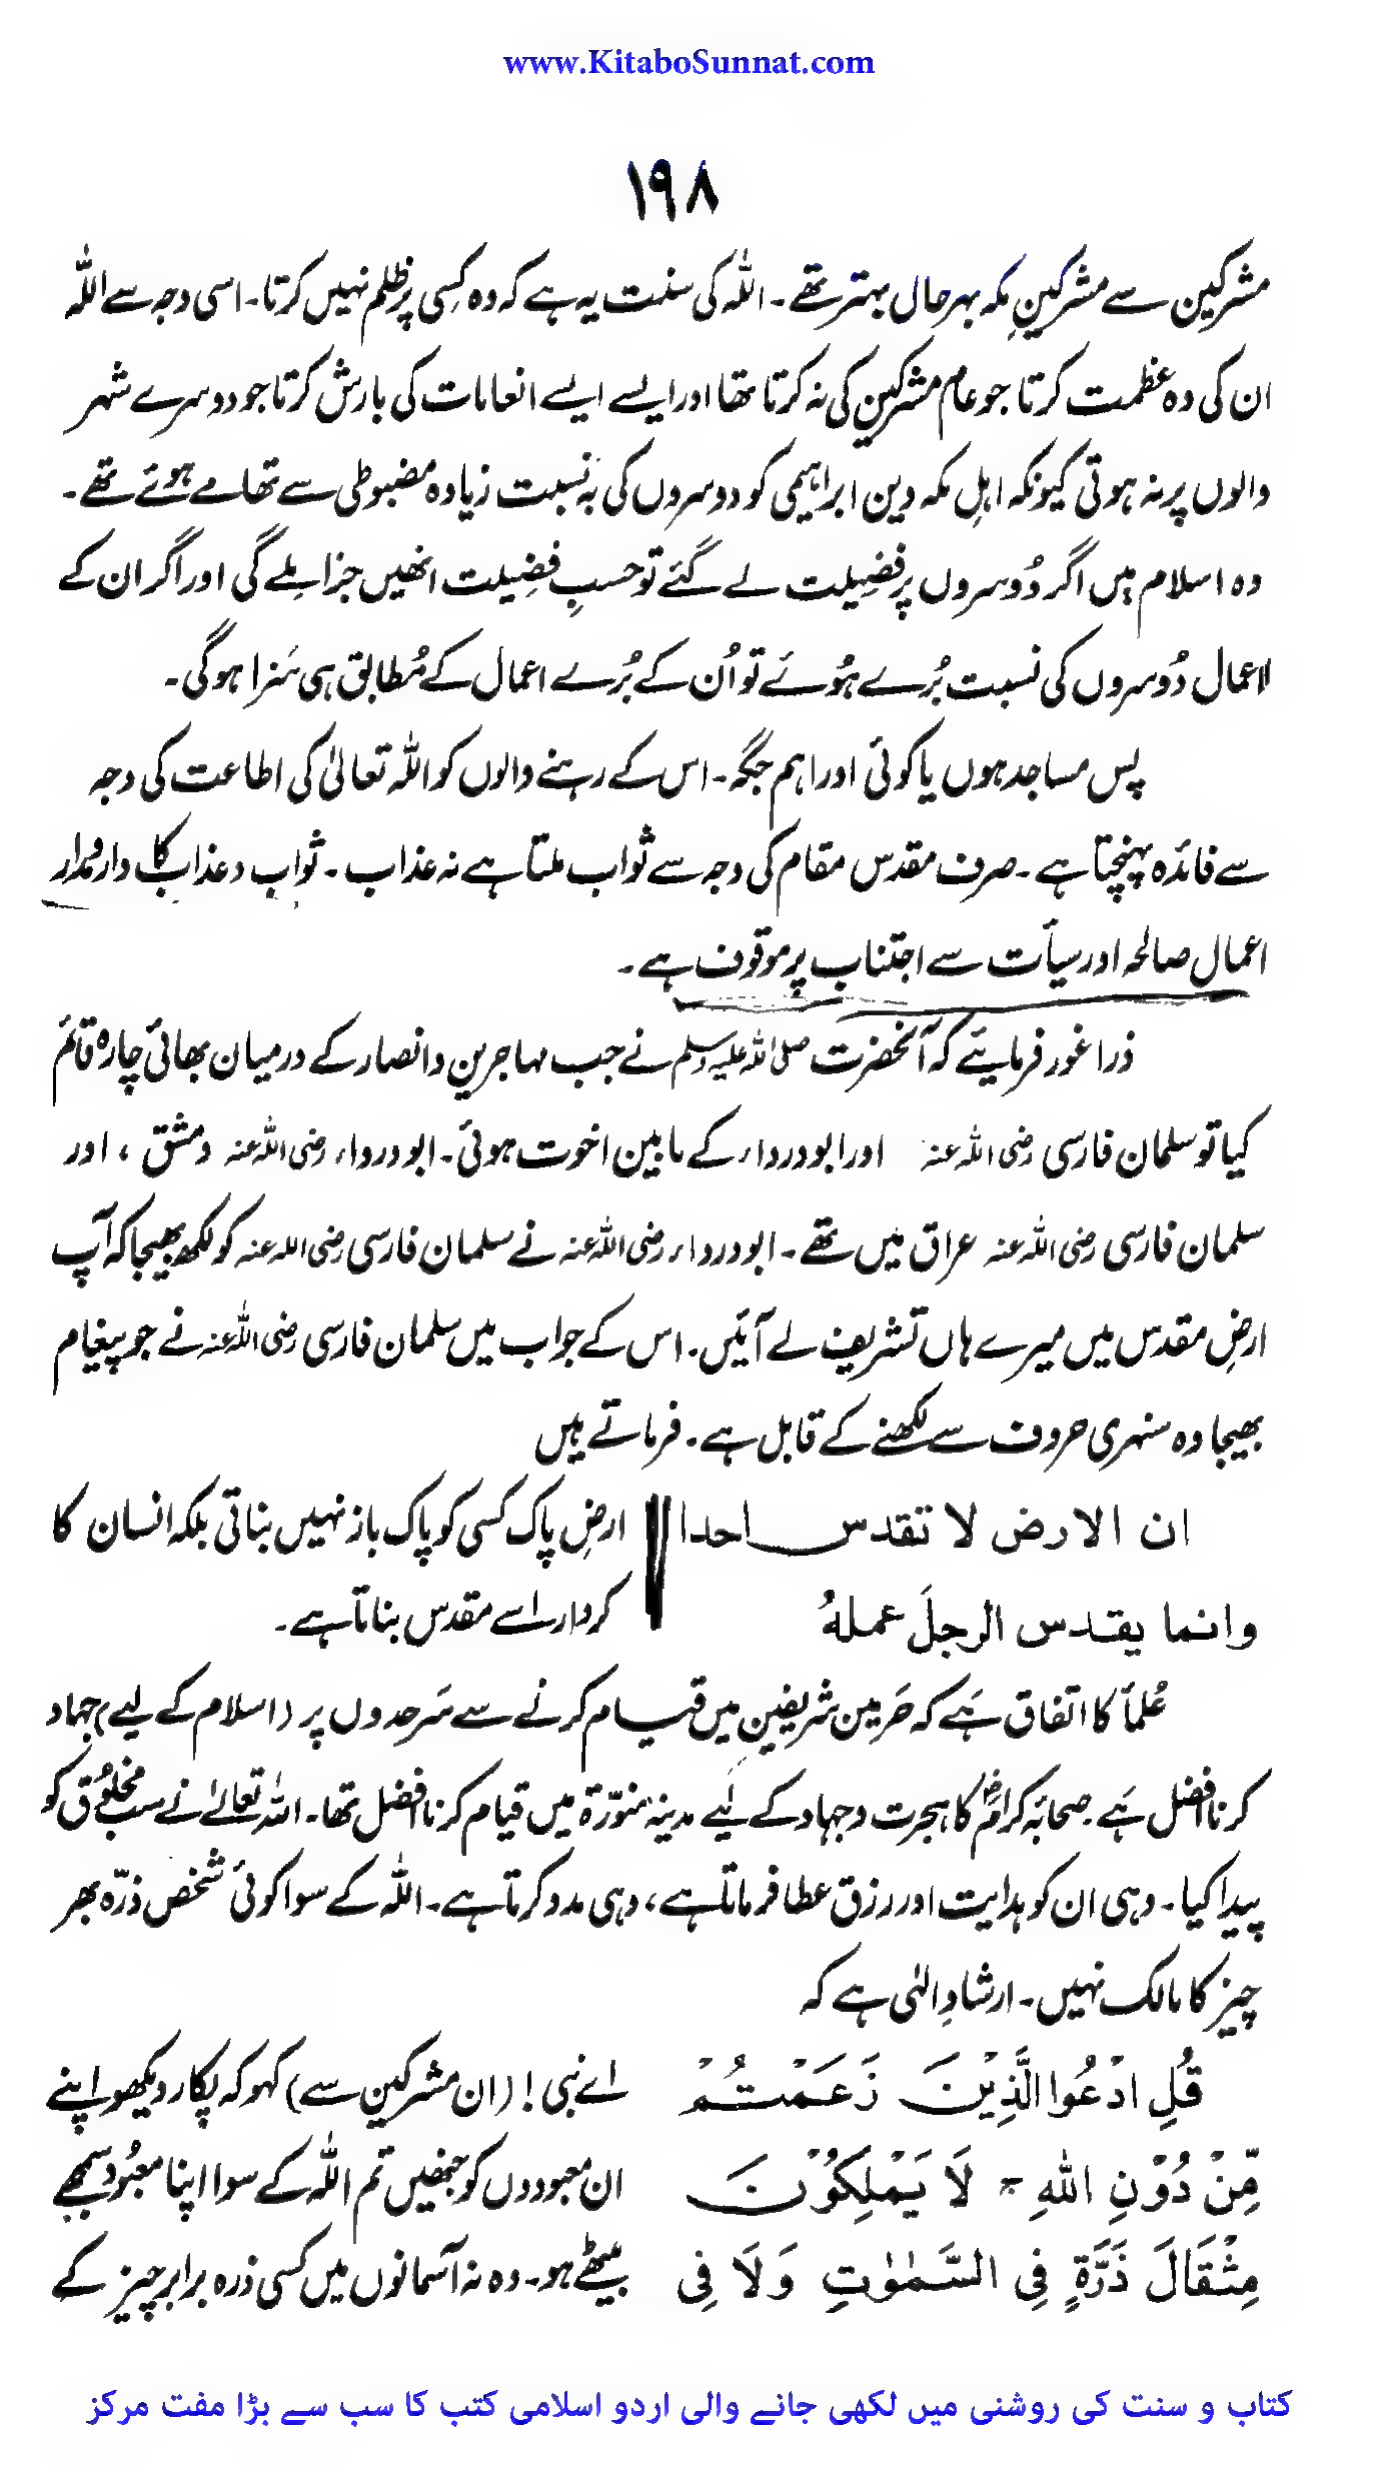 www.KitaboSunnat.com
۱۹۸
مشرکین سے مشرکینِ مکہ بہرحال بہتر تھے۔ اللہ کی سنت یہ ہے کہ وہ کِسی پر ظلم نہیں کرتا۔ اسی وجہ سے اللہ
ان کی وہ عظمت کرتا جو عام مشرکین کی نہ کرتا تھا اور ایسے ایسے انعامات کی بارش کرتا جو دوسرے شہر
والوں پر نہ ہوتی کیونکہ اہلِ مکہ دین ابراہیمی کو دوسروں کی بہ نسبت زیادہ مضبوطی سے تھامے ہوئے تھے۔
وہ اسلام میں اگر دُوسروں پر فضِیلت لے گئے تو حسبِ فضِیلت انھیں جزا ملے گی اور اگر ان کے
اعمال دُوسروں کی نسبت بُرے ہُوئے تو اُن کے بُرے اعمال کے مُطابق ہی سَزا ہوگی۔
پس مساجد ہوں یا کوئی اور اہم جگہ۔ اس کے رہنے والوں کو اللہ تعالیٰ کی اطاعت کی وجہ
سے فائدہ پہنچتا ہے۔ صرف مقدس مقام کی وجہ سے ثواب ملتا ہے نہ عذاب۔ ثواب و عذاب کا دارومدار
اعمال صالحہ اور سیأت سے اجتناب پر موقوف ہے۔
ذرا غور فرمایئے کہ آنحضرت صلی اللہ علیہ وسلم نے جب مہاجرین و انصار کے درمیان بھائی چارہ قائم
کیا تو سلمان فارسی رضی اللہ عنہ اور ابو درداء کے مابین اخوت ہوئی۔ ابو درداء رضی اللہ عنہ دمشق ، اور
سلمان فارسی رضی اللہ عنہ عراق میں تھے۔ ابو درداء رضی اللہ عنہ نے سلمان فارسی رضی اللہ عنہ کو لکھ بھیجا کہ آپ
ارضِ مقدس میں میرے ہاں تشریف لے آئیں۔ اس کے جواب میں سلمان فارسی رضی اللہ عنہ نے جو پیغام
بھیجا وہ سنہری حروف سے لکھنے کے قابل ہے۔ فرماتے ہیں
ان الارض لا تقدس احدا ارضِ پاک کسی کو پاک باز نہیں بناتی بلکہ انسان کا
وانما یقدس الرجلَ عملهُ کردار اسے مقدس بناتا ہے۔
عُلماً کا اتفاق ہَے کہ حَرمین شریفین میں قیام کرنے سے سَرحدوں پر (اسلام کے لیے) جہاد
کرنا افضل ہَے۔ صحابہ کرامؓ کا ہجرت و جہاد کے لیے مدینہ منوّرة میں قیام کرنا افضل تھا۔ اللہ تعالےٰ نے سب مخلُوق کو
پیدا کیا۔ وہی ان کو ہدایت اور رزق عطا فرماتا ہے، وہی مدد کرتا ہے۔ اللہ کے سوا کوئی شخص ذرّہ بھر
چیز کا مالک نہیں۔ ارشادِ الٰہی ہے کہ
قُلِ ادْعُوا الَّذِیْنَ زَعَمْتُمْ اے نبی! (ان مشرکین سے) کہو کہ پکار دیکھو اپنے
مِّنْ دُوْنِ اللهِ ۚ لَا یَمْلِکُوْنَ ان معبودوں کو جنھیں تم اللہ کے سوا اپنا معبُود سمجھے
مِثْقَالَ ذَرَّةٍ فِی السَّمٰوٰتِ وَلَا فِی بیٹھے ہو۔ وہ نہ آسمانوں میں کسی ذرہ برابر چیز کے
کتاب و سنت کی روشنی میں لکھی جانے والی اردو اسلامی کتب کا سب سے بڑا مفت مرکز